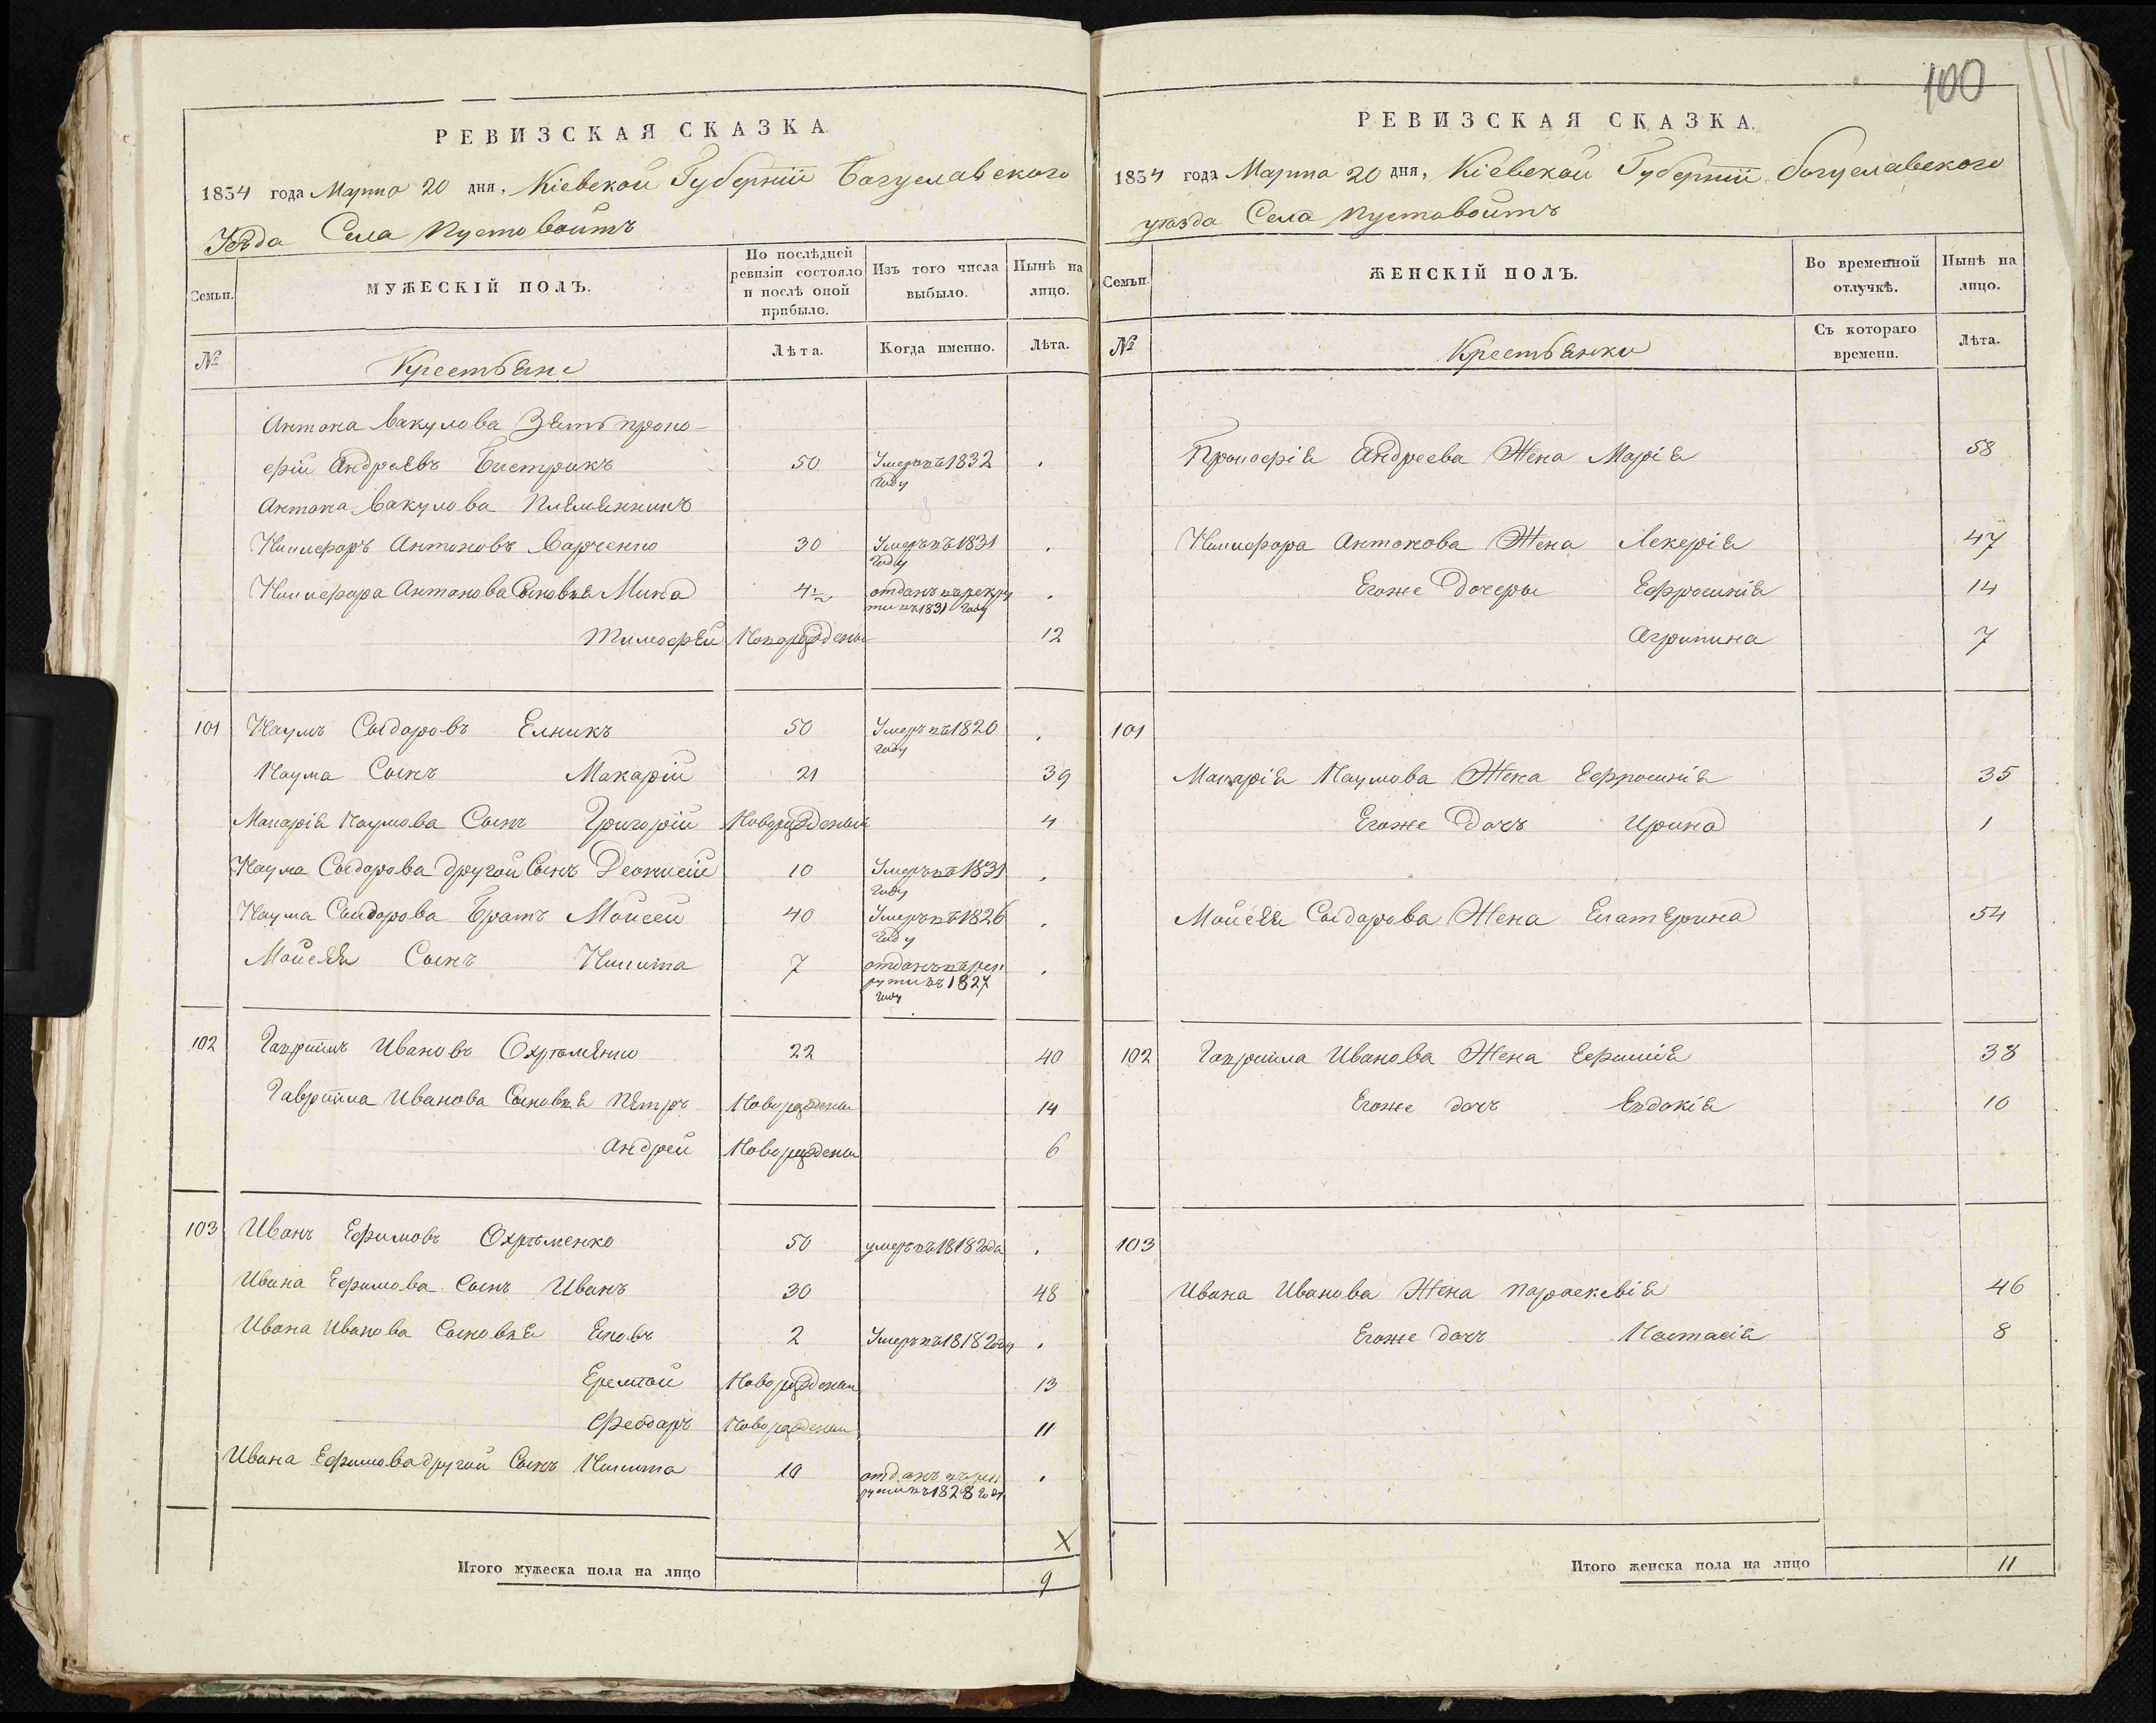 100
РЕВИЗСКАЯ СКАЗКА.
1834 года Марта 20 дня, Кіевской Губерніи Богуславского
Уезда Села Пустовойтъ
Семьи.
МУЖЕСКІЙ ПОЛЪ.
По послѣдней ревизіи состояло и послѣ оной прибыло.
Изъ того числа выбыло.
Нынѣ на лицо.
№
Крестьяне
Лѣта.
Когда именно.
Лѣта.
Антона Вакулова Зять проко-
фій Андреевъ Бистрикъ 50 Умеръ въ 1832 .
Году
Антона Вакулова Племянникъ
Никифоръ Антоновъ Харченко 30 Умеръ въ 1831 .
Году
Никифора Антонова Сыновья Мина 4½ отданъ въ рекру .
ти въ 1831 Году
Тимофей Новорожденый 12
101 Наумъ Сыдоровъ Елникъ 50 Умеръ въ 1820 .
году
Наума Сынъ Макарій 21 39
Макарія Наумова Сынъ Григорій Новорожденый 4
Наума Сыдорова другой Сынъ Деонисій 10 Умеръ въ 1831 .
Году
Наума Сыдорова Братъ Мойсей 40 Умеръ въ 1826 .
Году
Мойсея Сынъ Никита 7 отданъ въ рек .
рути въ 1827
Году
102 Гаврыилъ Ивановъ Охрѣменко 22 40
Гаврыила Иванова Сыновья Петръ Новорожденый 14
Андрей Новорожденый 6
103 Иванъ Ефимовъ Охрѣменко 50 умеръ въ 1818 Года .
Ивана Ефимова Сынъ Иванъ 30 48
Ивана Иванова Сыновья Яковъ 2 Умеръ въ 1818 Году .
Еремѣй Новорожденый 13
Феодоръ Новорожденый 11
Ивана Ефимова другой Сынъ Никита 10 отданъ въ рек .
рути въ 1828 Году
X
Итого мужеска пола на лицо 9
РЕВИЗСКАЯ СКАЗКА.
1834 года Марта 20 дня, Кіевской Губерніи Богуславского
уезда Села Пустовойтъ
Семьи.
ЖЕНСКІЙ ПОЛЪ.
Во временной отлучкѣ.
Нынѣ на лицо.
№
Крестьянки
Съ котораго времени.
Лѣта.
Прокофія Андреева Жена Марія 58
Никифора Антонова Жена Лекерія 47
Егоже Дочеры Ефросинія 14
Агрипина 7
101
Макарія Наумова Жена Ефросинія 35
Егоже Дочъ Ирина 1
Мойсея Сыдорова Жена Екатерина 54
102 Гаврыила Иванова Жена Ефимія 38
Егоже дочъ Евдокія 10
103
Ивана Иванова Жена Параскевія 46
Егоже дочъ Настасія 8
Итого женска пола на лицо 11